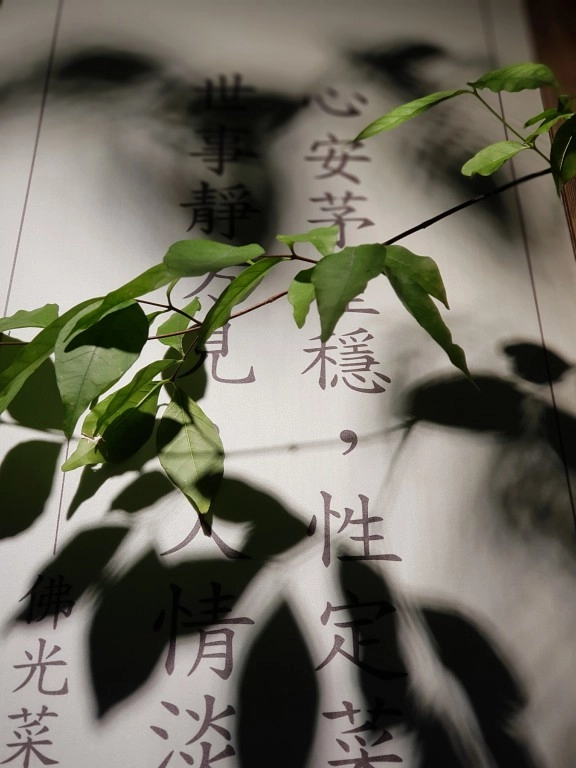 心安茅屋穩，性定菜
世事靜方見，人情淡
佛光菜